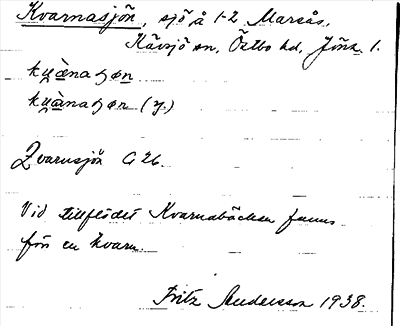 Kvarnasjön, sjö å 1-2 Marsås,
Kävsjö sn, Östbo hd, Jönk. l.
(y.)
Qvarnsjön G 26.
Vid tillflödet Kvarnabäcken fanns
förr en kvarn.
Fritz Andersson 1938.